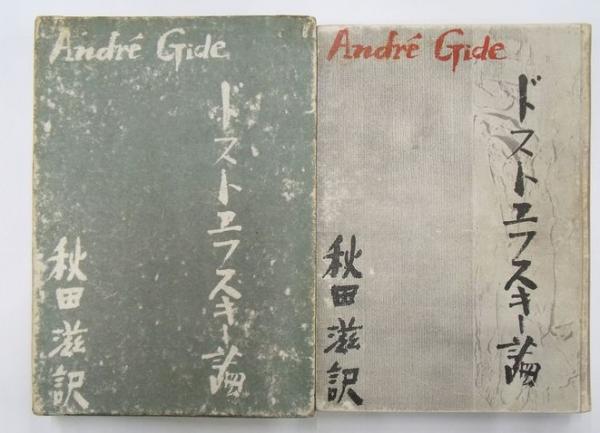 André Gide
ドストエフスキー論
秋田滋訳
André Gide
ドストエフスキー論
秋田滋訳